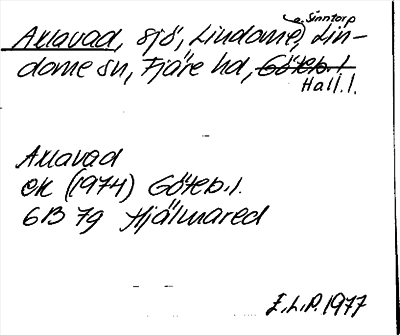 o. Sinntorp
Axlavad, sjö, Lindome, Lin-
dome sn, Fjäre hd, Göteb. l.
Hall. l.
Axlavad
ek (1974) Göteb. l.
6B 7g Hjälmared
E.L.P. 1977